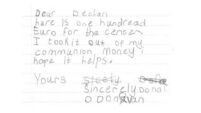 Dear Declan
here is one hundread
Euro for the center
I tookit out of my
communion money i
hope it helps.
Yours
Sincerely Donal
O Donovan